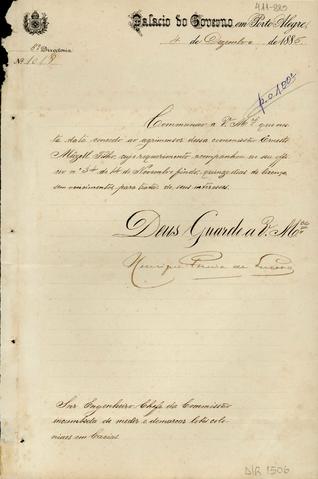 411-220
Palacio do Governo, em Porto Alegre,
4 de Dezembro de 1885.
3ª Directoria
Nº 1018
Communico a Vª Mcê que nes-
ta data concedo ao agrimensor dessa commissão Ernesto
Filho, cujo requerimento acompanhou o seu offi-
cio nº 34 de 14 de Novembro findo, quinze dias de licença
sem vencimentos, para tratar de seus interesses.
Deus Guarde a Vª Mcê
Henrique Pereira de Lucena
Snr Engenheiro Chefe da Commissão
incumbida de medir e demarcar lotes colo-
niaes em Caxias
DIR 1506